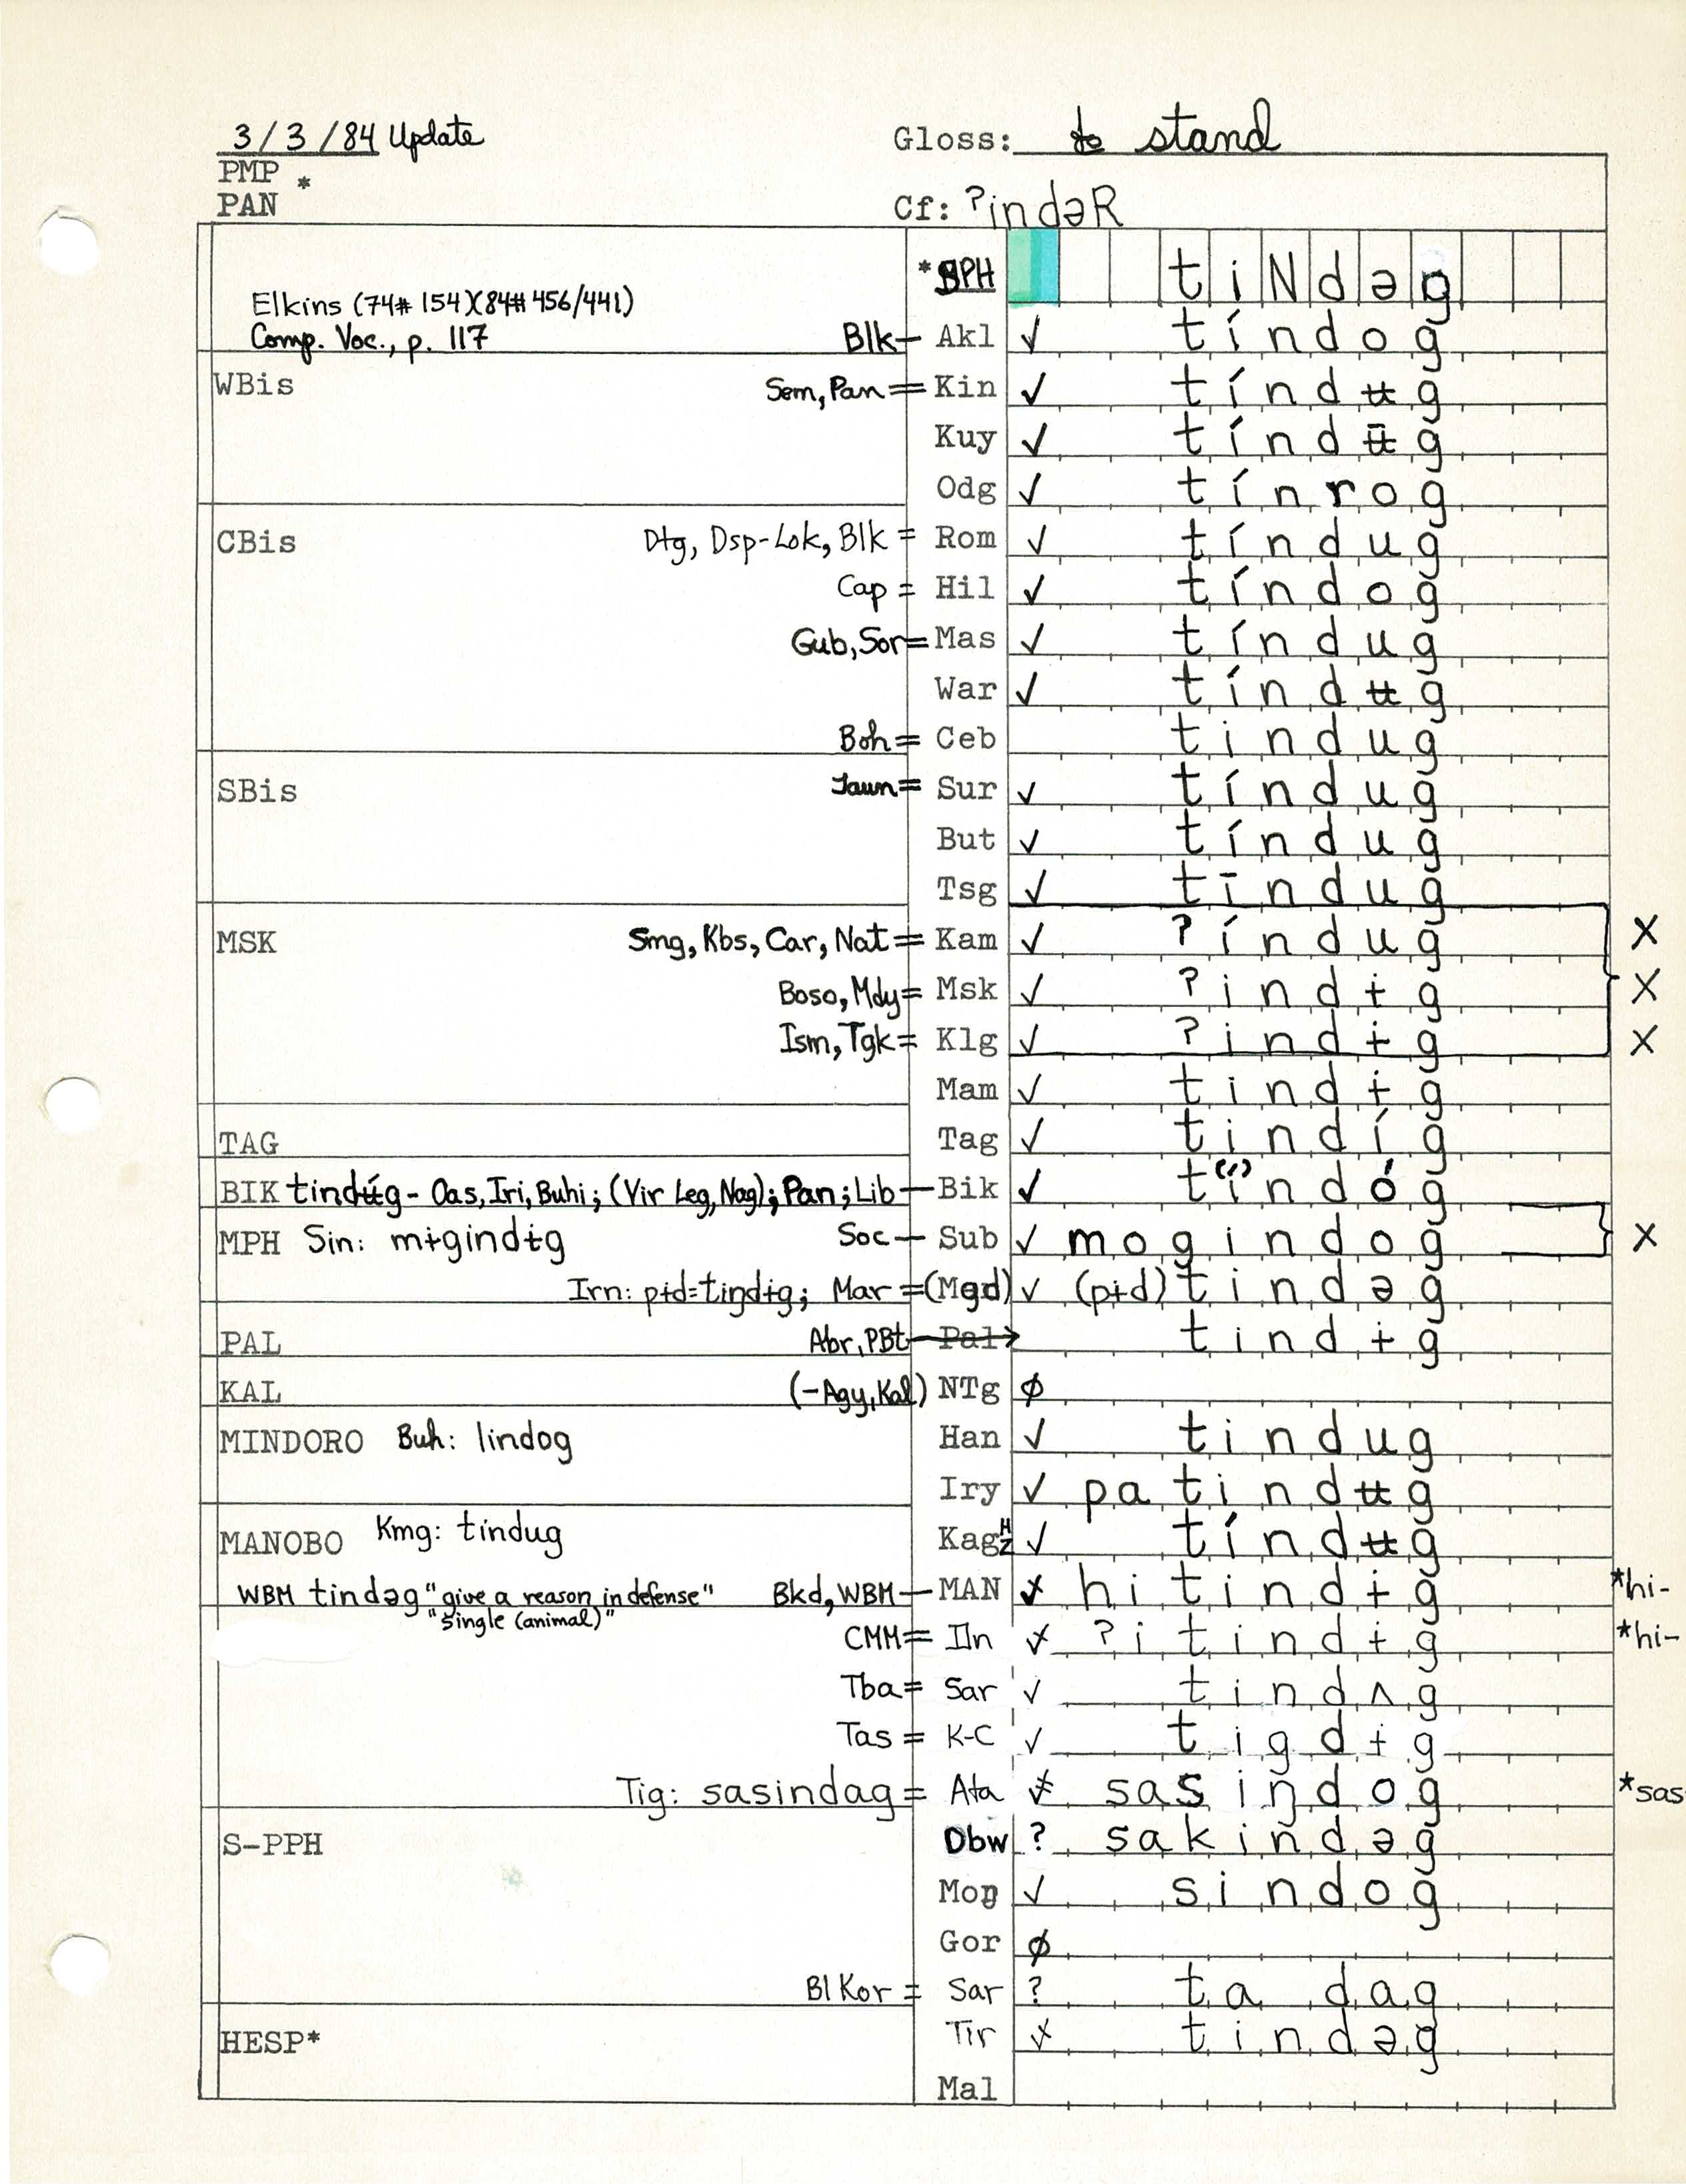 3/3/84 Update Gloss: to stand
PMP *
PAN Cf: ʔindəR
*BPH tiNdəg
Elkins (74#154)(84#456/441)
Comp. Voc., p. 117 Blk— Akl ✓ tíndog
WBis Sem, Pan = Kin ✓ tíndʉg
Kuy ✓ tíndʉ̄g
Odg ✓ tínrog
CBis Dtg, Dsp-Lok, Blk = Rom ✓ tíndug
Cap = Hil ✓ tíndog
Gub, Sor = Mas ✓ tíndug
War ✓ tíndʉg
Boh = Ceb tindug
SBis Jaun = Sur ✓ tíndug
But ✓ tíndug
Tsg ✓ tīndug
MSK Smg, Kbs, Car, Nat = Kam ✓ ʔíndug X
Boso, Mdy = Msk ✓ ʔindɨg X
Ism, Tgk = Klg ✓ ʔindɨg X
Mam ✓ tindɨg
TAG Tag ✓ tindíg
BIK tindʉ́g - Oas, Iri, Buhi; (Vir Leg, Nag); Pan; Lib — Bik ✓ ti(´)ndóg
MPH Sin: mɨgindɨg Soc — Sub ✓ mogindog X
Irn: pɨd=tindɨg; Mar = (Mgd) ✓ (pɨd) tindəg
PAL Abr, PBt — Pal → tindɨg
KAL (-Agy, Kal) NTg ∅
MINDORO Buh: lindog Han ✓ tindug
Iry ✓ patindʉg
MANOBO Kmg: tindug Kag H/Z ✓ tíndʉg
WBM tindəg "give a reason in defense" Bkd, WBM — MAN ✓ hitindɨg *hi-
"single (animal)"
CMM = Iln ✓ ʔitindɨg *hi-
Tba = Sar ✓ tindʌg
Tas = K-C ✓ tigdɨg
Tig: sasindag = Ata ✓ sasindog *sas
S-PPH Dbw ? sakindəg
Moŋ ✓ sindog
Gor ∅
Bl Kor = Sar ? ta dag
Tir ✓ tindəg
HESP*
Mal